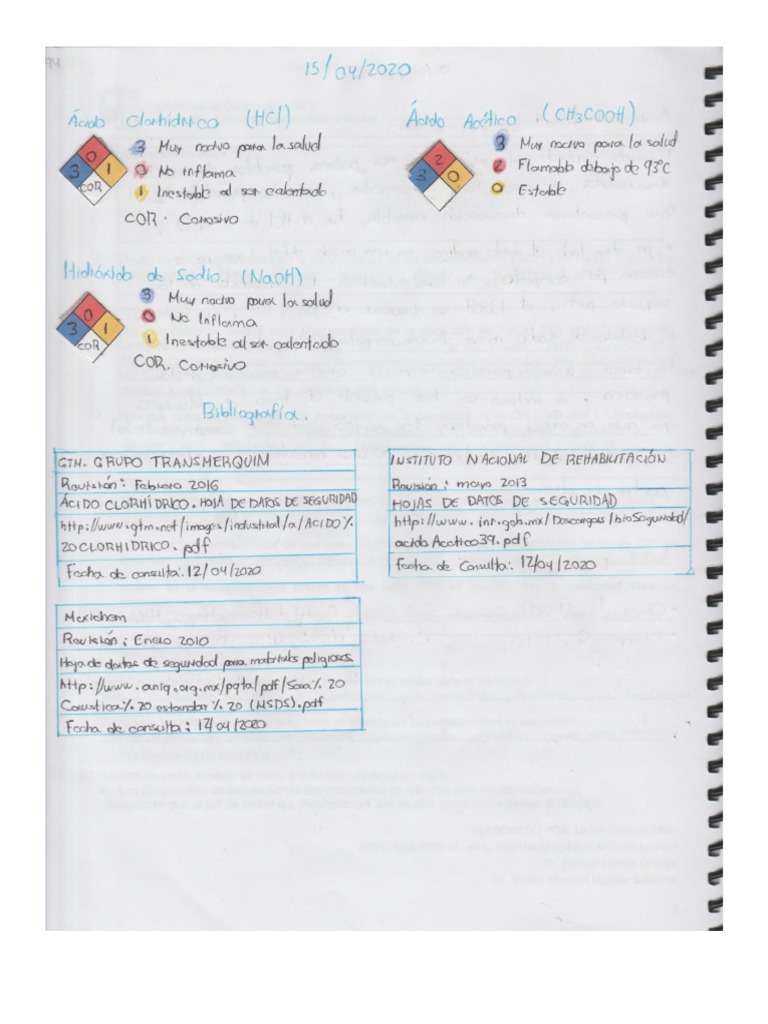 94
15/04/2020
Ácido Clorhídrico (HCl)
0
3 1
COR
3 Muy nocivo para la salud
0 No inflama
1 Inestable al ser calentado
COR. Corrosivo
Ácido Acético (CH3COOH)
2
3 0
3 Muy nocivo para la salud
2 Flamable debajo de 93°C
0 Estable
Hidróxido de Sodio (NaOH)
0
3 1
COR
3 Muy nocivo para la salud
0 No Inflama
1 Inestable al ser calentado
COR. Corrosivo
Bibliografía.
GTM. GRUPO TRANSMERQUIM
Revisión: Febrero 2016
ÁCIDO CLORHÍDRICO. HOJA DE DATOS DE SEGURIDAD
http://www.gtm.net/images/industrial/a/ACIDO%
20CLORHIDRICO.pdf
Fecha de consulta: 12/04/2020
INSTITUTO NACIONAL DE REHABILITACIÓN
Revisión: mayo 2013
HOJAS DE DATOS DE SEGURIDAD
http://www.inr.gob.mx/Descargas/bioSeguridad/
acidoAcetico39.pdf
Fecha de Consulta: 12/04/2020
Mexichem
Revisión: Enero 2010
Hoja de datos de seguridad para materiales peligrosos
http://www.aniq.org.mx/pqta/pdf/Sosa%20
Caustica%20estandar%20(MSDS).pdf
Fecha de consulta: 12/04/2020